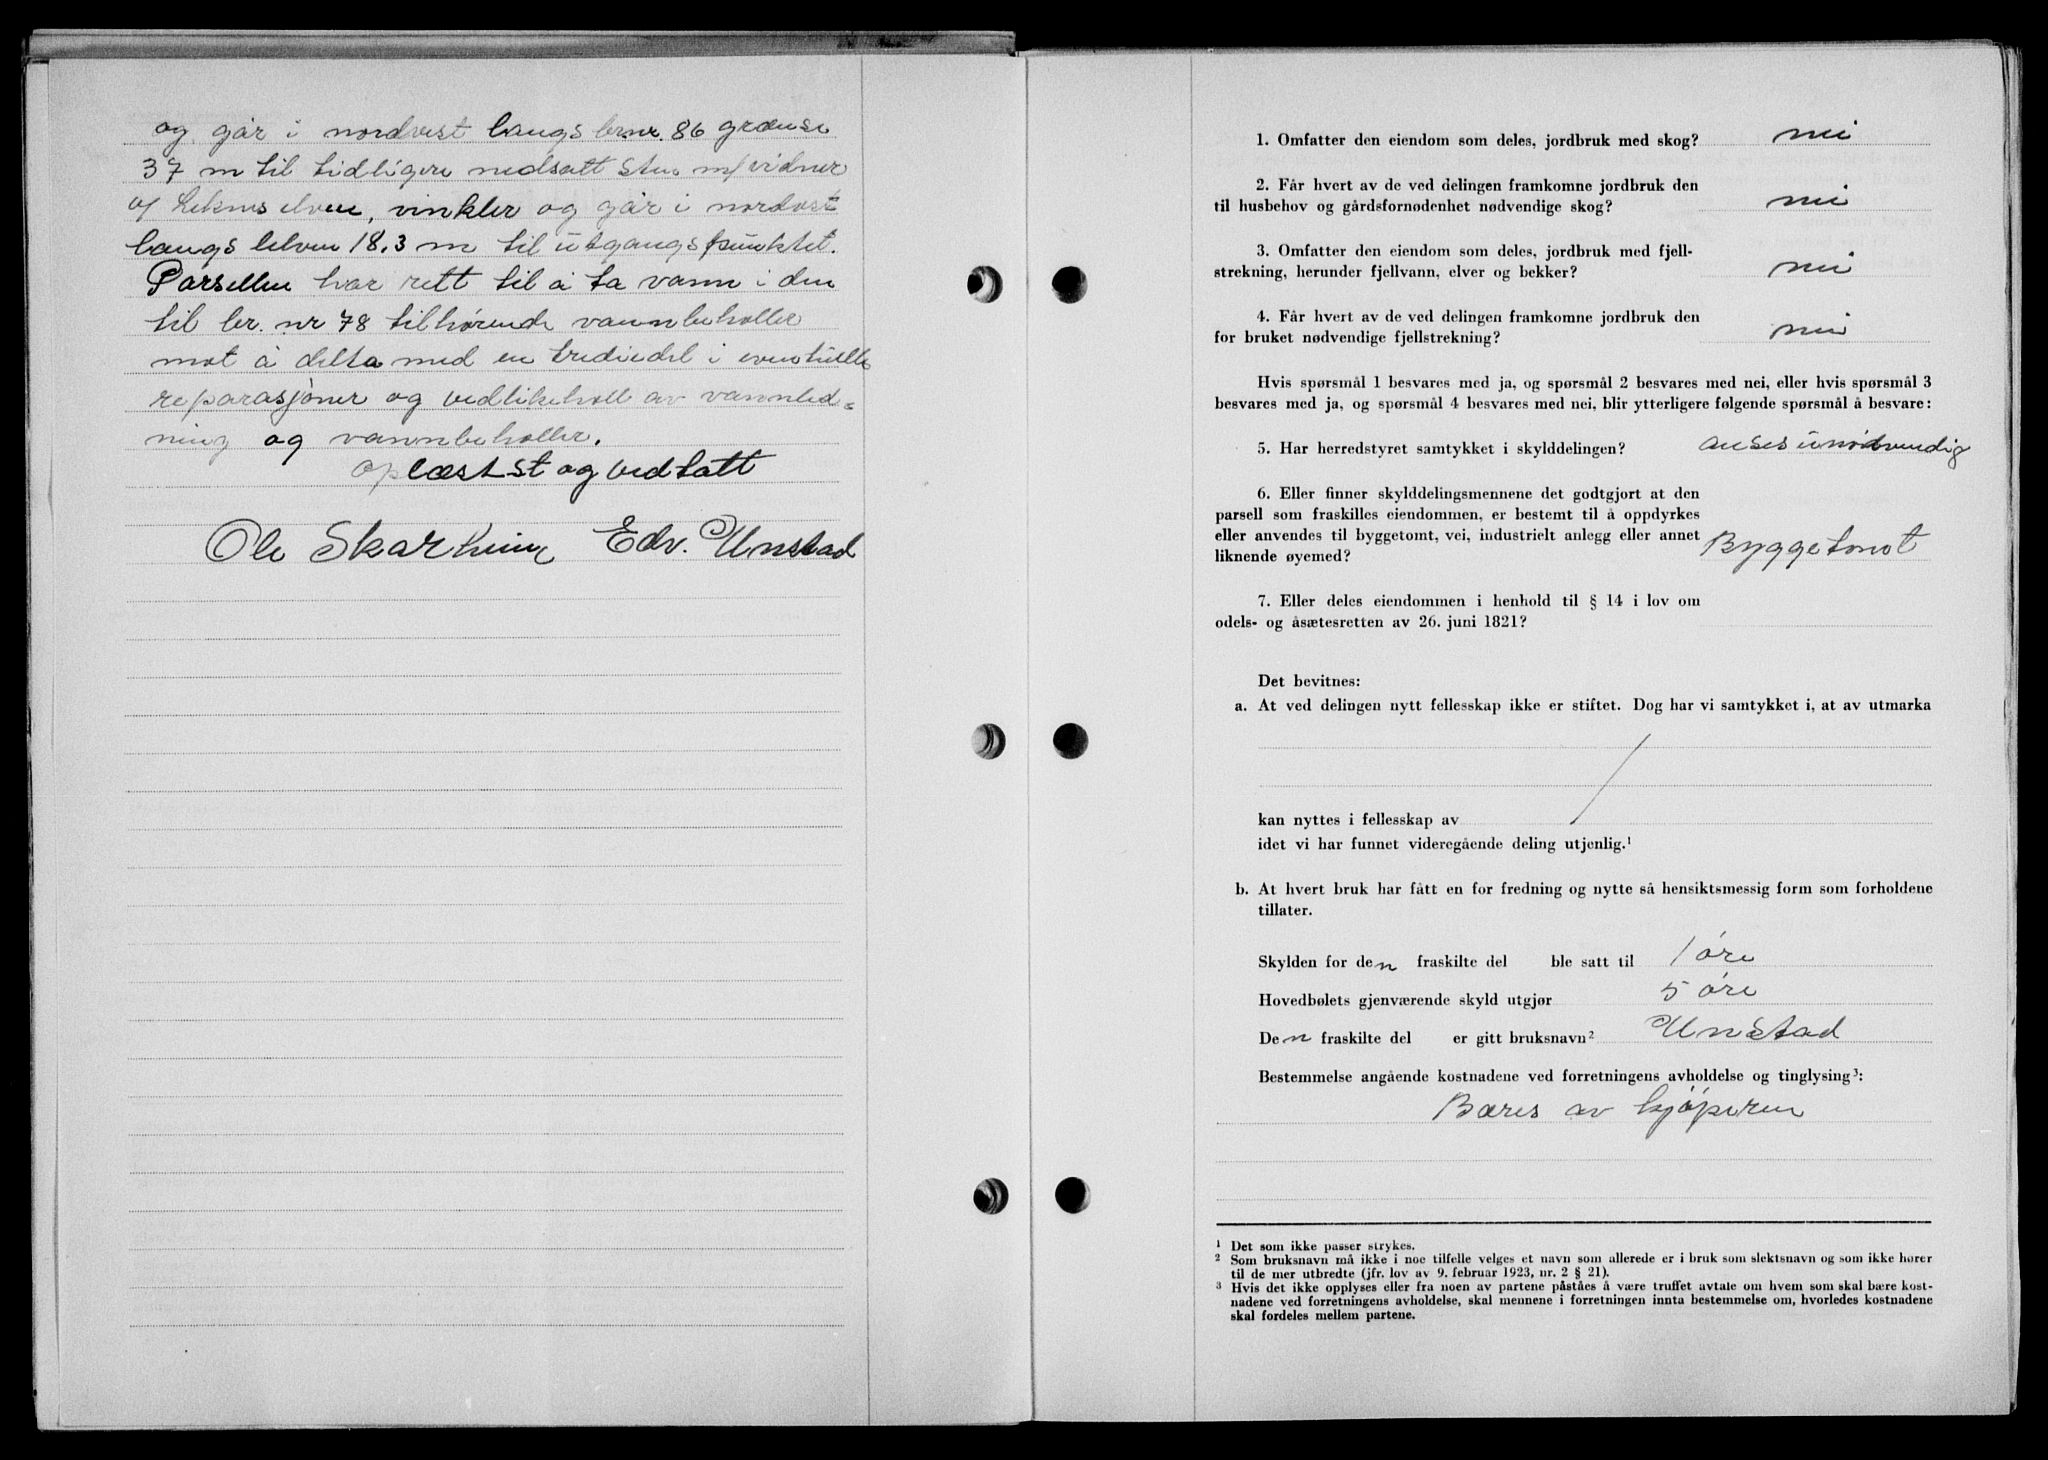 og går i nordvest langs br.nr. 86 grænse
37 m til tidligere nedsatt sten m/vidner
v/ Leknes elven, vinkler og går i nordost
langs elven 18.3 m til utgangspunktet.
Parsellen har rett til å ta vann i den
til br. nr 78 tilhørende vannbeholler
mot å delta med en trediedel i eventuelle
reparasjoner og vedlikeholl av vannled=
ning og vannbeholler.
oplæst st og vedtatt
Ole Skarheim Edv. Unstad
1. Omfatter den eiendom som deles, jordbruk med skog? nei
2. Får hvert av de ved delingen framkomne jordbruk den
til husbehov og gårdsfornødenhet nødvendige skog? nei
3. Omfatter den eiendom som deles, jordbruk med fjell-
strekning, herunder fjellvann, elver og bekker? nei
4. Får hvert av de ved delingen framkomne jordbruk den
for bruket nødvendige fjellstrekning? nei
Hvis spørsmål 1 besvares med ja, og spørsmål 2 besvares med nei, eller hvis spørsmål 3
besvares med ja, og spørsmål 4 besvares med nei, blir ytterligere følgende spørsmål å besvare:
5. Har herredstyret samtykket i skylddelingen? anses unødvendig
6. Eller finner skylddelingsmennene det godtgjort at den
parsell som fraskilles eiendommen, er bestemt til å oppdyrkes
eller anvendes til byggetomt, vei, industrielt anlegg eller annet
liknende øyemed? Byggetomt
7. Eller deles eiendommen i henhold til § 14 i lov om
odels- og åsætesretten av 26. juni 1821?
Det bevitnes:
a. At ved delingen nytt fellesskap ikke er stiftet. Dog har vi samtykket i, at av utmarka
kan nyttes i fellesskap av
idet vi har funnet videregående deling utjenlig.¹
b. At hvert bruk har fått en for fredning og nytte så hensiktsmessig form som forholdene
tillater.
Skylden for den fraskilte del ble satt til 1 øre
Hovedbølets gjenværende skyld utgjør 5 øre
Den fraskilte del er gitt bruksnavn² Unstad
Bestemmelse angående kostnadene ved forretningens avholdelse og tinglysing³:
Bæres av kjøperen
¹ Det som ikke passer strykes.
² Som bruksnavn må ikke i noe tilfelle velges et navn som allerede er i bruk som slektsnavn og som ikke hører
til de mer utbredte (jfr. lov av 9. februar 1923, nr. 2 § 21).
³ Hvis det ikke opplyses eller fra noen av partene påståes å være truffet avtale om hvem som skal bære kost-
nadene ved forretningens avholdelse, skal mennene i forretningen innta bestemmelse om, hvorledes kostnadene
skal fordeles mellem partene.